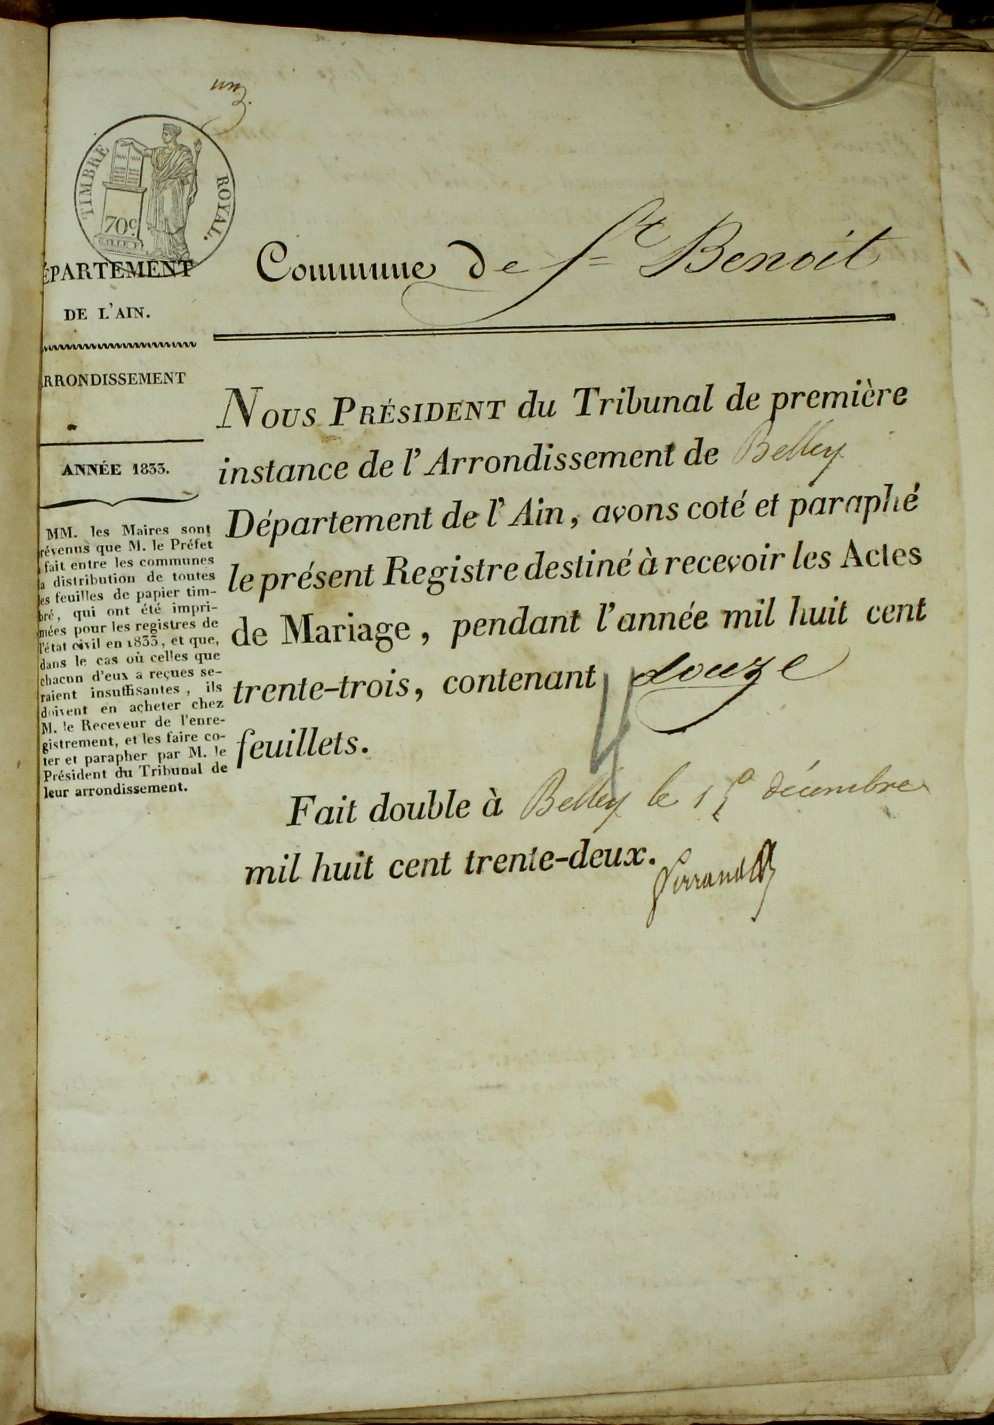 un
TIMBRE ROYAL.
70c
ÉPARTEMENT
DE L'AIN.
RRONDISSEMENT
ANNÉE 1833.
MM. les Maires sont
révenus que M. le Préfet
fait entre les communes
a distribution de toutes
es feuilles de papier tim-
bré, qui ont été impri-
mées pour les registres de
l'état civil en 1833, et que,
dans le cas où celles que
chacun d'eux a reçues se-
raient insuffisantes, ils
doivent en acheter chez
M. le Receveur de l'enre-
gistrement, et les faire co-
ter et parapher par M. le
Président du Tribunal de
leur arrondissement.
Commune de St Benoit
NOUS PRÉSIDENT du Tribunal de première
instance de l'Arrondissement de Belley
Département de l'Ain, avons coté et paraphé
le présent Registre destiné à recevoir les Actes
de Mariage, pendant l'année mil huit cent
trente-trois, contenant douze
feuillets.
Fait double à Belley le décembre
mil huit cent trente-deux.